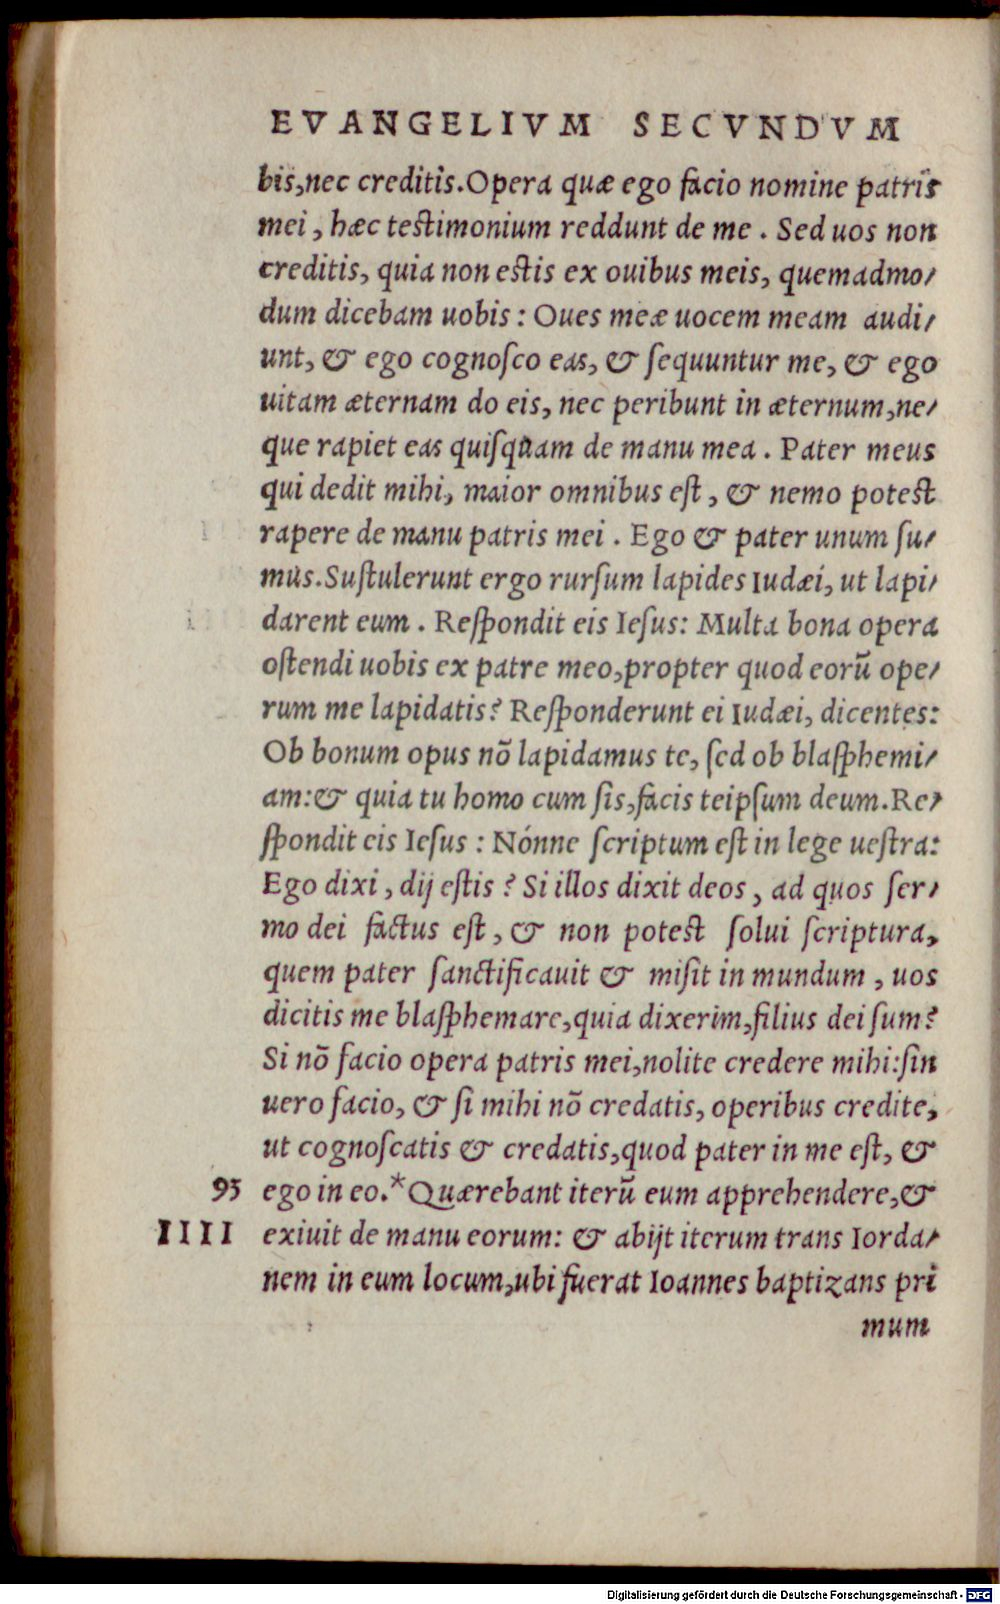 EVANGELIVM SECVNDVM
bis,nec creditis.Opera quæ ego facio nomine patris
mei , hæc testimonium reddunt de me . Sed uos non
creditis, quia non estis ex ouibus meis, quemadmo/
dum dicebam uobis : Oues meæ uocem meam audi/
unt, & ego cognoſco eas, & ſequuntur me, & ego
uitam æternam do eis, nec peribunt in æternum,ne/
que rapiet eas quiſquam de manu mea . Pater meus
qui dedit mihi, maior omnibus eſt , & nemo potest
rapere de manu patris mei . Ego & pater unum ſu/
mus.Suſtulerunt ergo rurſum lapides Iudæi, ut lapi/
darent eum . Reſpondit eis Ieſus: Multa bona opera
oſtendi uobis ex patre meo,propter quod eorũ ope/
rum me lapidatis? Reſponderunt ei Iudæi, dicentes:
Ob bonum opus nõ lapidamus te, ſed ob blaſphemi/
am:& quia tu homo cum ſis,facis teipſum deum.Re/
ſpondit eis Ieſus : Nónne ſcriptum eſt in lege ueſtra:
Ego dixi , dij eſtis ? Si illos dixit deos , ad quos ſer/
mo dei factus eſt , & non potest ſolui ſcriptura,
quem pater ſanctificauit & miſit in mundum , uos
dicitis me blaſphemare,quia dixerim,filius dei ſum?
Si nõ facio opera patris mei,nolite credere mihi:ſin
uero facio, & ſi mihi nõ credatis, operibus credite,
ut cognoſcatis & credatis,quod pater in me eſt, &
95 ego in eo.*Quærebant iterũ eum apprehendere,&
IIII exiuit de manu eorum: & abijt iterum trans Iorda/
nem in eum locum,ubi fuerat Ioannes baptizans pri
mum
Digitalisierung gefördert durch die Deutsche Forschungsgemeinschaft - DFG